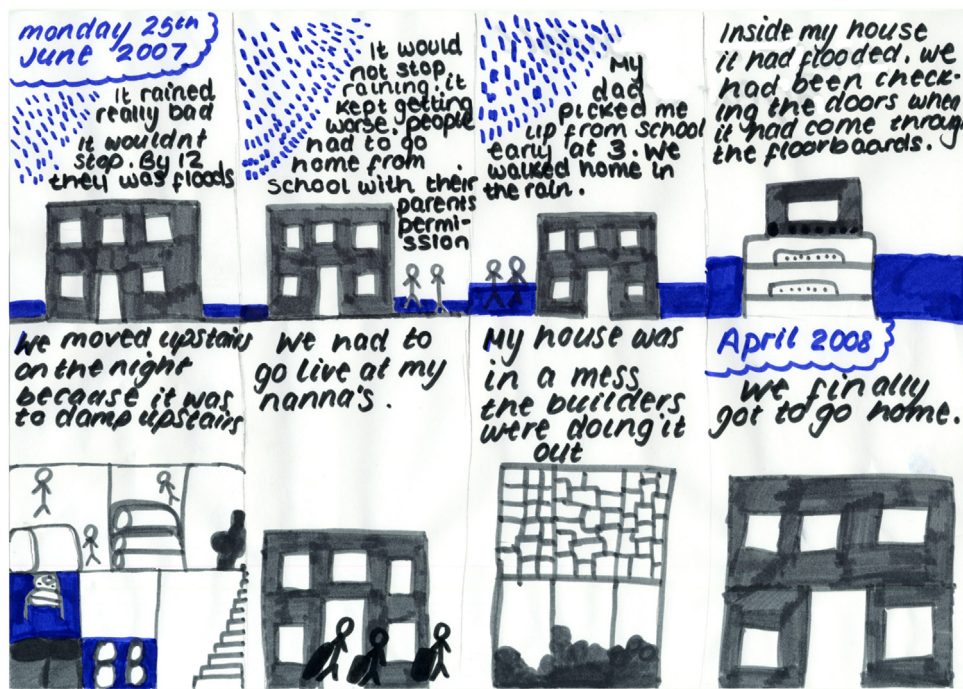 monday 25th
June 2007
It rained
really bad
it wouldnt
stop. By 12
they was floods
It would
not stop
raining. it
kept getting
worse. people
had to go
home from
school with their
parents
permi-
ssion
My
dad
picked me
up from school
early at 3. We
walked home in
the rain.
Inside my house
it had flooded. we
had been check-
ing the doors when
it had come through
the floorboards.
We moved upstairs
on the night
becaase it was
to damp upstairs
We had to
go live at my
nanna's.
My house was
in a mess
the builders
were doing it
out
April 2008
We finally
got to go home.